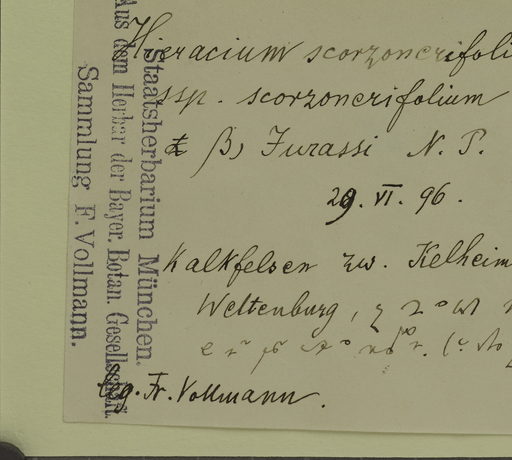 Hieracium scorzonerifoli
ssp. scorzonerifolium
β) Jurassi N. P.
29. VI. 96.
Kalkfelsen zw. Kelheim
Weltenburg,
leg. Fr. Vollmann.
Staatsherbarium München.
Aus dem Herbar der Bayer. Botan. Gesellschaft.
Sammlung F. Vollmann.